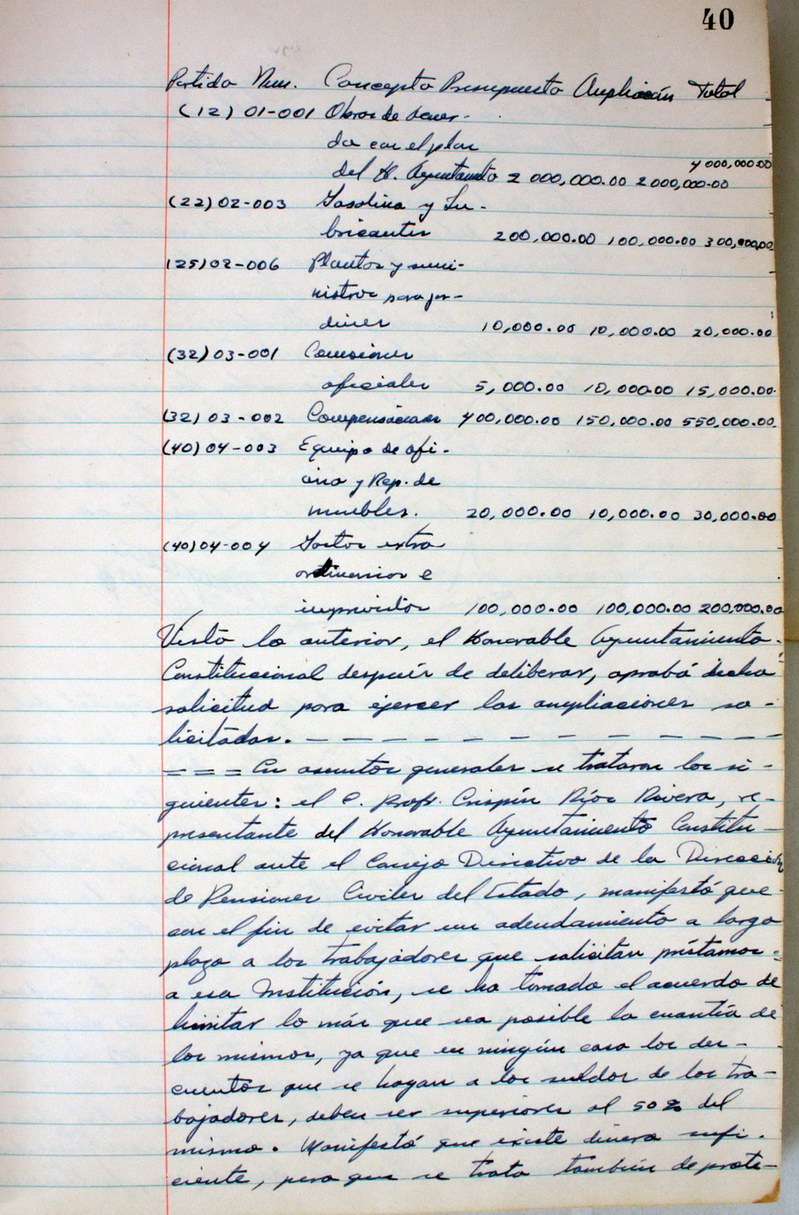 40
Partida Num. Concepto Presupuesto Ampliación Total
(12) 01-001 Obras de acuer-
do con el plan
4 000,000.00
del H. Ayuntamiento 2 000,000.00 2 000,000.00
(22) 02-003 Gasolina y Lu-
bricantes 200,000.00 100,000.00 300,000.00
(25) 02-006 Plantas y sumi-
nistros para jar-
dines 10,000.00 10,000.00 20,000.00
(32) 03-001 Comisiones
oficiales 5,000.00 10,000.00 15,000.00
(32) 03-002 Compensaciones 400,000.00 150,000.00 550,000.00
(40) 04-003 Equipo de ofi-
cina y Rep. de
muebles. 20,000.00 10,000.00 30,000.00
(40) 04-004 Gastos extra
ordinarios e
imprevistos 100,000.00 100,000.00 200,000.00
Visto lo anterior, el Honorable Ayuntamiento
Constitucional después de deliberar, aprobó dicha
solicitud para ejercer las ampliaciones so-
licitadas. — — — — — — — — — — — —
= = = En asuntos generales se trataron los si-
guientes: el C. Profr. Crispín Ríos Rivera, re-
presentante del Honorable Ayuntamiento Constitu-
cional ante el Consejo Directivo de la Dirección
de Pensiones Civiles del Estado, manifestó que
con el fin de evitar un adendamiento a largo
plazo a los trabajadores que solicitan préstamos
a esa Institución, se ha tomado el acuerdo de
limitar lo más que sea posible la cuantía de
los mismos, ya que en ningún caso los des-
cuentos que se hagan a los sueldos de los tra-
bajadores, deben ser superiores al 50% del
mismo. Manifestó que existe dinero sufi-
ciente, pero que se trata también de prote-